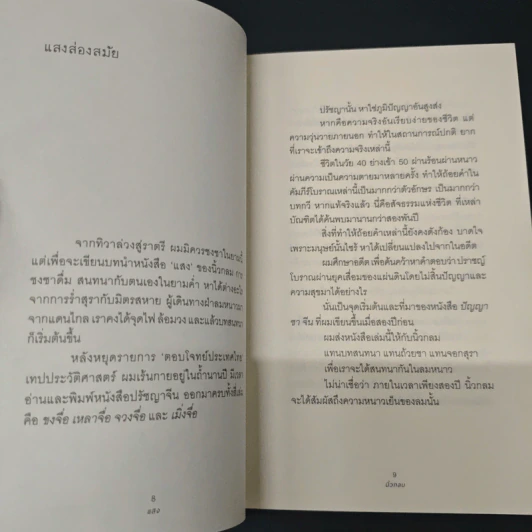 แสงส่องสมัย
จากทิวาล่วงสู่ราตรี ผมมิควรชงชาในยามนี้
แต่เพื่อจะเขียนบทนำหนังสือ 'แสง' ของนิ้วกลม การ
ชงชาดื่ม สนทนากับตนเองในยามค่ำ หาได้ต่างอะไร
จากการร่ำสุรากับมิตรสหาย ผู้เดินทางฝ่าลมหนาวมา
จากแดนไกล เราคงได้จุดไฟ ล้อมวง และแล้วบทสนทนา
ก็เริ่มต้นขึ้น
หลังหยุดรายการ 'ตอบโจทย์ประเทศไทย
เทปประวัติศาสตร์ ผมเร้นกายอยู่ในถ้ำนานปี มีเวลา
อ่านและพิมพ์หนังสือปรัชญาจีน ออกมาครบทั้งสี่เล่ม
คือ ขงจื่อ เหลาจื่อ จวงจื่อ และ เมิ่งจื่อ
8
แสง
ปรัชญานั้น หาใช่ภูมิปัญญาอันสูงส่ง
หากคือความจริงอันเรียบง่ายของชีวิต แต่
ความวุ่นวายภายนอก ทำให้ในสถานการณ์ปกติ ยาก
ที่เราจะเข้าถึงความจริงเหล่านี้
ชีวิตในวัย 40 ย่างเข้า 50 ผ่านร้อนผ่านหนาว
ผ่านความเป็นความตายมาหลายครั้ง ทำให้ถ้อยคำใน
คัมภีร์โบราณเหล่านี้เป็นมากกว่าตัวอักษร เป็นมากกว่า
บทกวี หากแท้จริงแล้ว นี่คือสัจธรรมแห่งชีวิต ที่เหล่า
บัณฑิตได้ค้นพบมานานกว่าสองพันปี
สิ่งที่ทำให้ถ้อยคำเหล่านี้ยังคงดังก้อง บาดใจ
เพราะมนุษย์นั้นไซร้ หาได้เปลี่ยนแปลงไปจากในอดีต
ผมศึกษาอดีต เพื่อค้นคว้าหาคำตอบว่า ปราชญ์
โบราณผ่านยุคเสื่อมของแผ่นดินโดยไม่สิ้นปัญญาและ
ความสุขมาได้อย่างไร
นั่นเป็นจุดเริ่มต้นและที่มาของหนังสือ ปัญญา
ชา จีน ที่ผมเขียนขึ้นเมื่อสองปีก่อน
ผมส่งหนังสือเล่มนี้ให้กับนิ้วกลม
แทนบทสนทนา แทนถ้วยชา แทนจอกสุรา
เพื่อเราจะได้สนทนากันในลมหนาว
ไม่น่าเชื่อว่า ภายในเวลาเพียงสองปี นิ้วกลม
จะได้สัมผัสถึงความหนาวเย็นของลมนั้น
9
นิ้วกลม